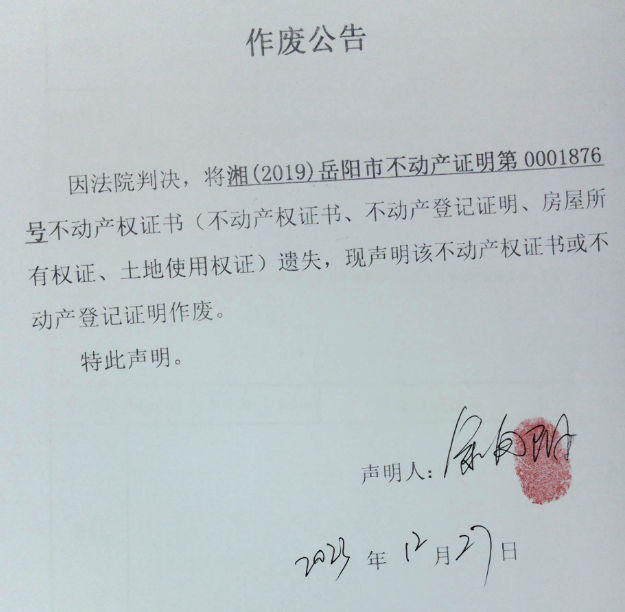 作废公告
因法院判决，将湘(2019)岳阳市不动产证明第 0001876
号不动产权证书（不动产权证书、不动产登记证明、房屋所
有权证、土地使用权证）遗失，现声明该不动产权证书或不
动产登记证明作废。
特此声明。
声明人：
2023 年 12 月 27 日